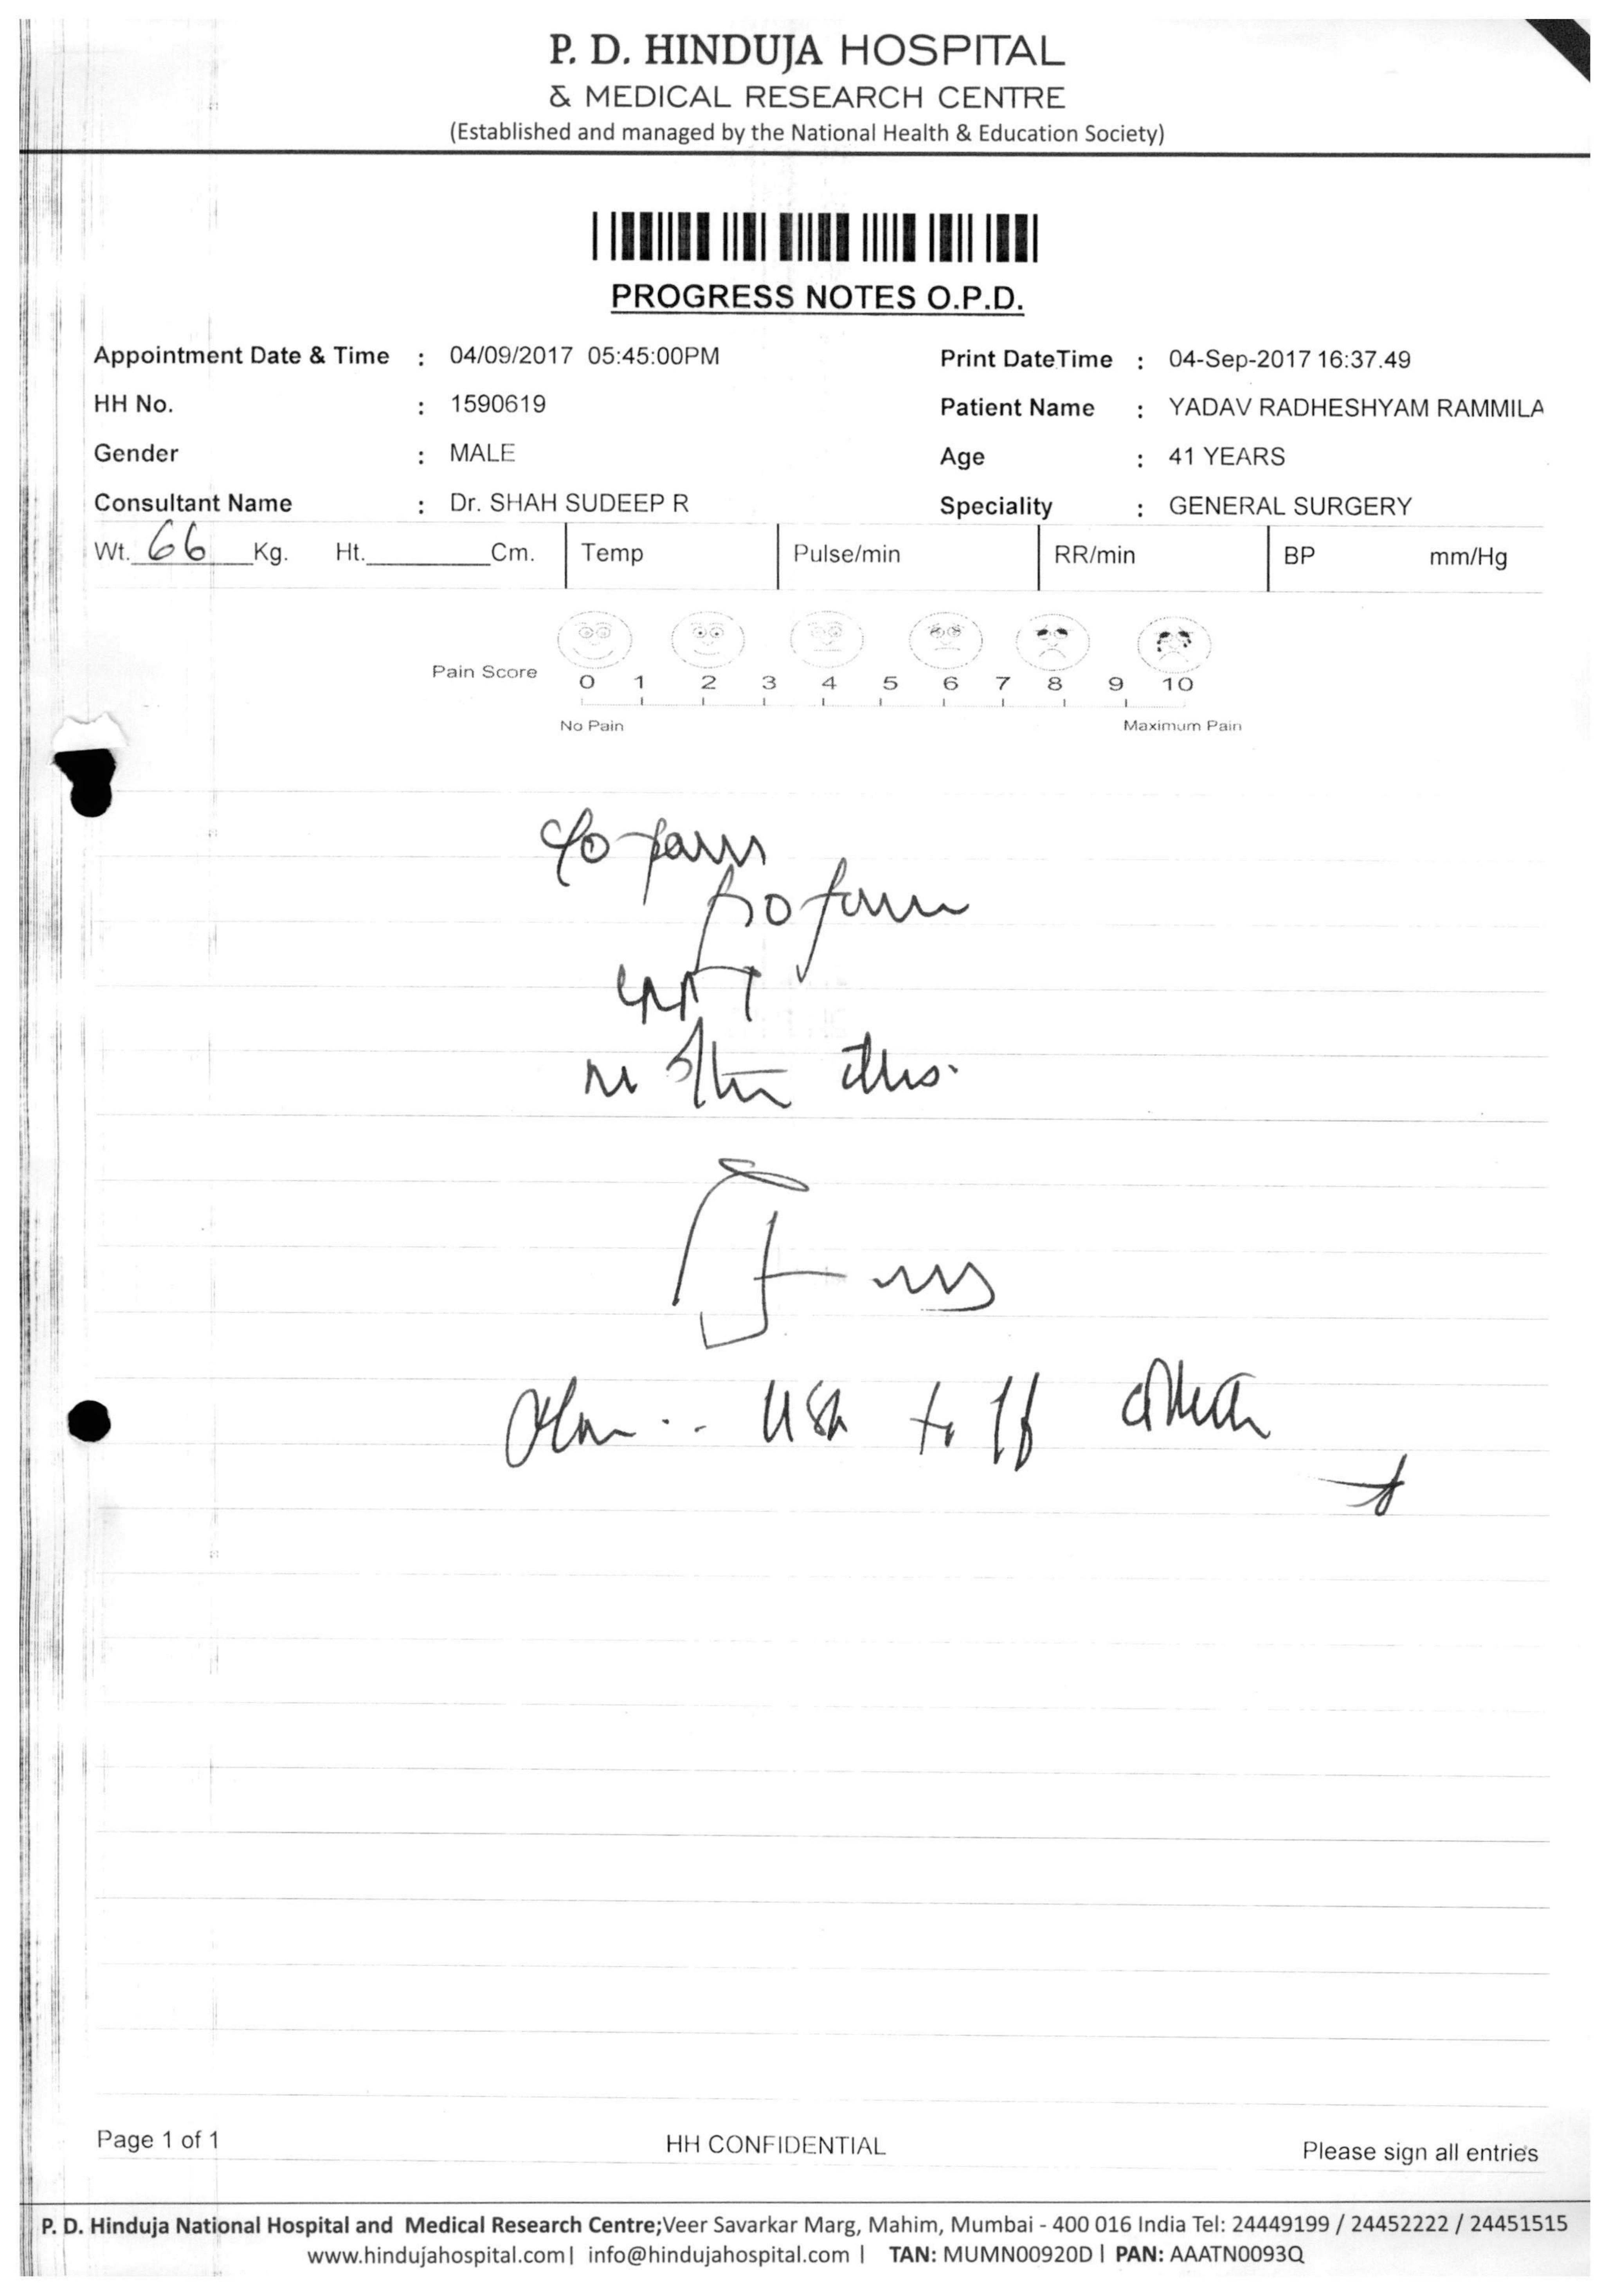 P. D. HINDUJA HOSPITAL
& MEDICAL RESEARCH CENTRE
(Established and managed by the National Health & Education Society)
PROGRESS NOTES O.P.D.
Appointment Date & Time : 04/09/2017 05:45:00PM Print DateTime : 04-Sep-2017 16:37.49
HH No. : 1590619 Patient Name : YADAV RADHESHYAM RAMMILA
Gender : MALE Age : 41 YEARS
Consultant Name : Dr. SHAH SUDEEP R Speciality : GENERAL SURGERY
Wt. 66 Kg. Ht. Cm. Temp Pulse/min RR/min BP mm/Hg
Pain Score 0 1 2 3 4 5 6 7 8 9 10
No Pain Maximum Pain
c/o pain
Page 1 of 1 HH CONFIDENTIAL Please sign all entries
P. D. Hinduja National Hospital and Medical Research Centre;Veer Savarkar Marg, Mahim, Mumbai - 400 016 India Tel: 24449199 / 24452222 / 24451515
www.hindujahospital.com | info@hindujahospital.com | TAN: MUMN00920D | PAN: AAATN0093Q